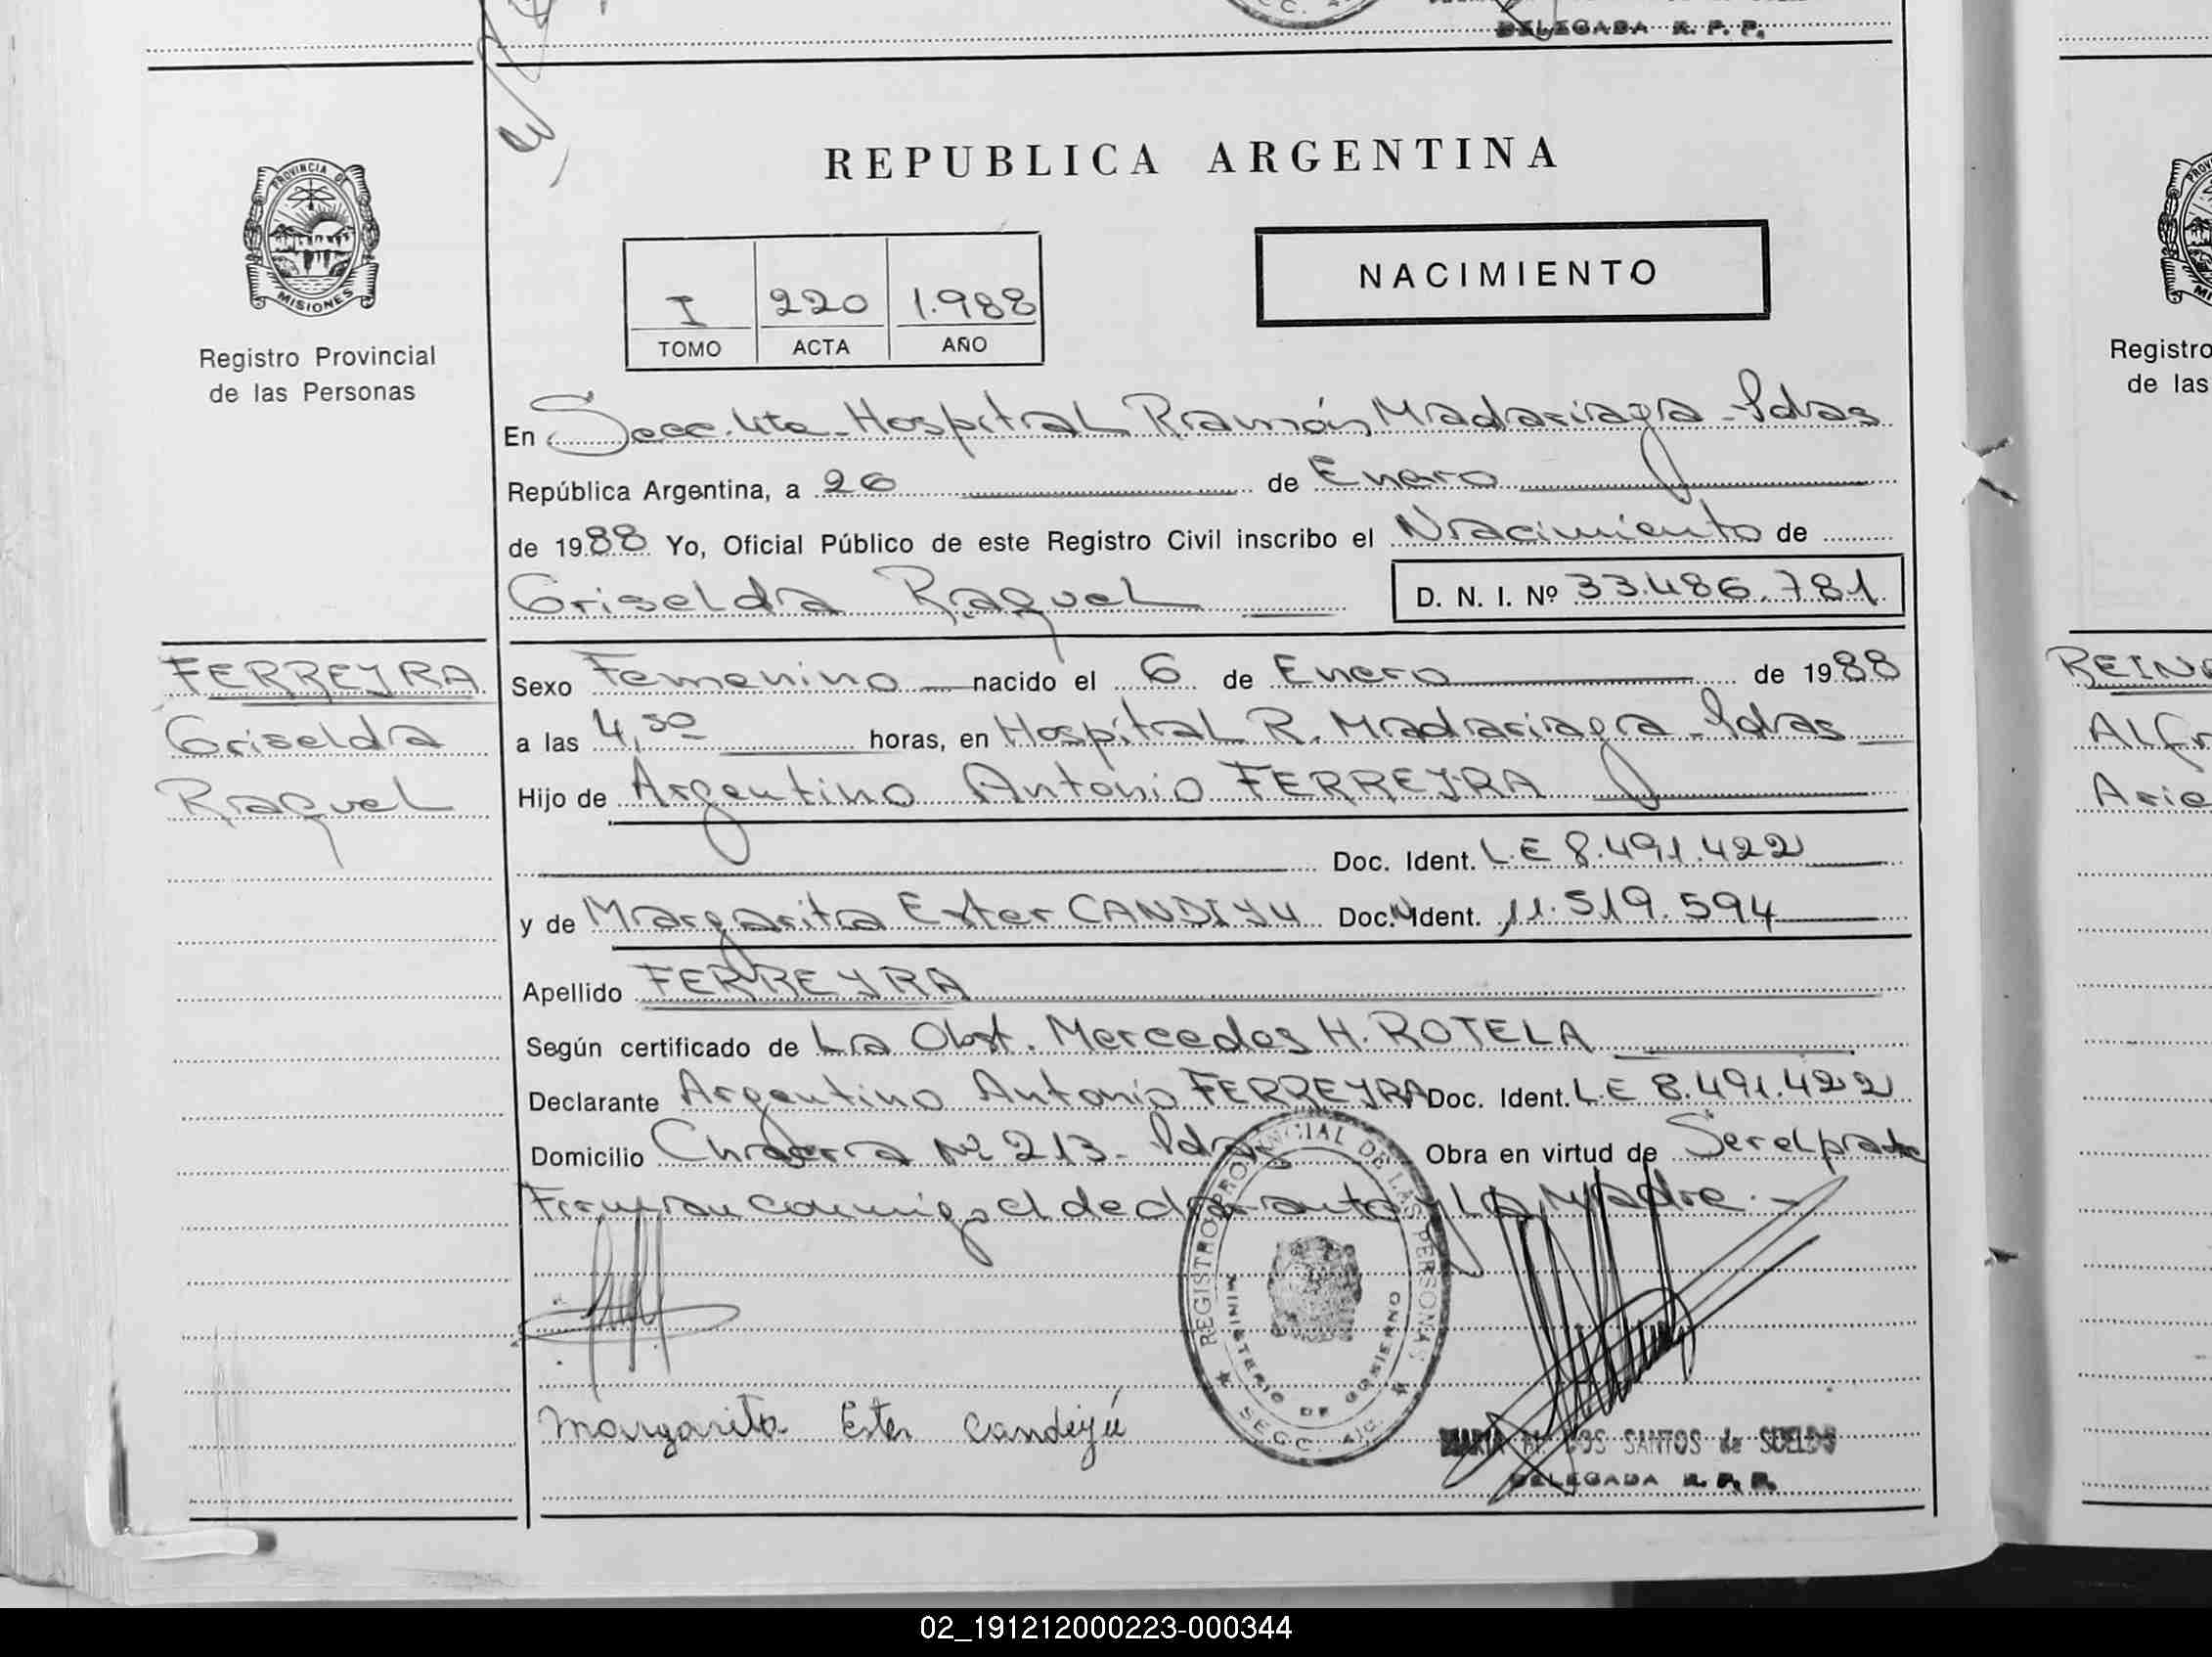 DELEGADA R. P. P.
REPUBLICA ARGENTINA
PROVINCIA DE
MISIONES
Registro Provincial
de las Personas
I 220 1.988
TOMO ACTA AÑO
NACIMIENTO
En Secc. 4ta - Hospital Ramón Madariaga - Pdas
República Argentina, a 26 de Enero
de 1988 Yo, Oficial Público de este Registro Civil inscribo el Nacimiento de
Griselda Raquel D. N. I. Nº 33.486.781
FERREYRA
Griselda
Raquel
Sexo Femenino nacido el 6 de Enero de 1988
a las 4,50 horas, en Hospital R. Madariaga - Pdas
Hijo de Argentino Antonio FERREYRA
Doc. Ident. L.E 8.491.422
y de Margarita Ester CANDIYU Doc. Ident. 11.519.594
Apellido FERREYRA
Según certificado de La Obst. Mercedes H. ROTELA
Declarante Argentino Antonio FERREYRA Doc. Ident. L.E 8.491.422
Domicilio Chacra Nº 213 - Pdas Obra en virtud de Ser el padre
Firman conmigo el declarante y La Madre. -
REGISTRO PROVINCIAL DE LAS PERSONAS
MINISTERIO DE GOBIERNO
SECC. 4ta.
Margarita Ester Candiyú
MARIA M. DOS SANTOS de SUELDO
DELEGADA R. P. P.
Registro
de las
REIN
ALfr
Arie
02_191212000223-000344